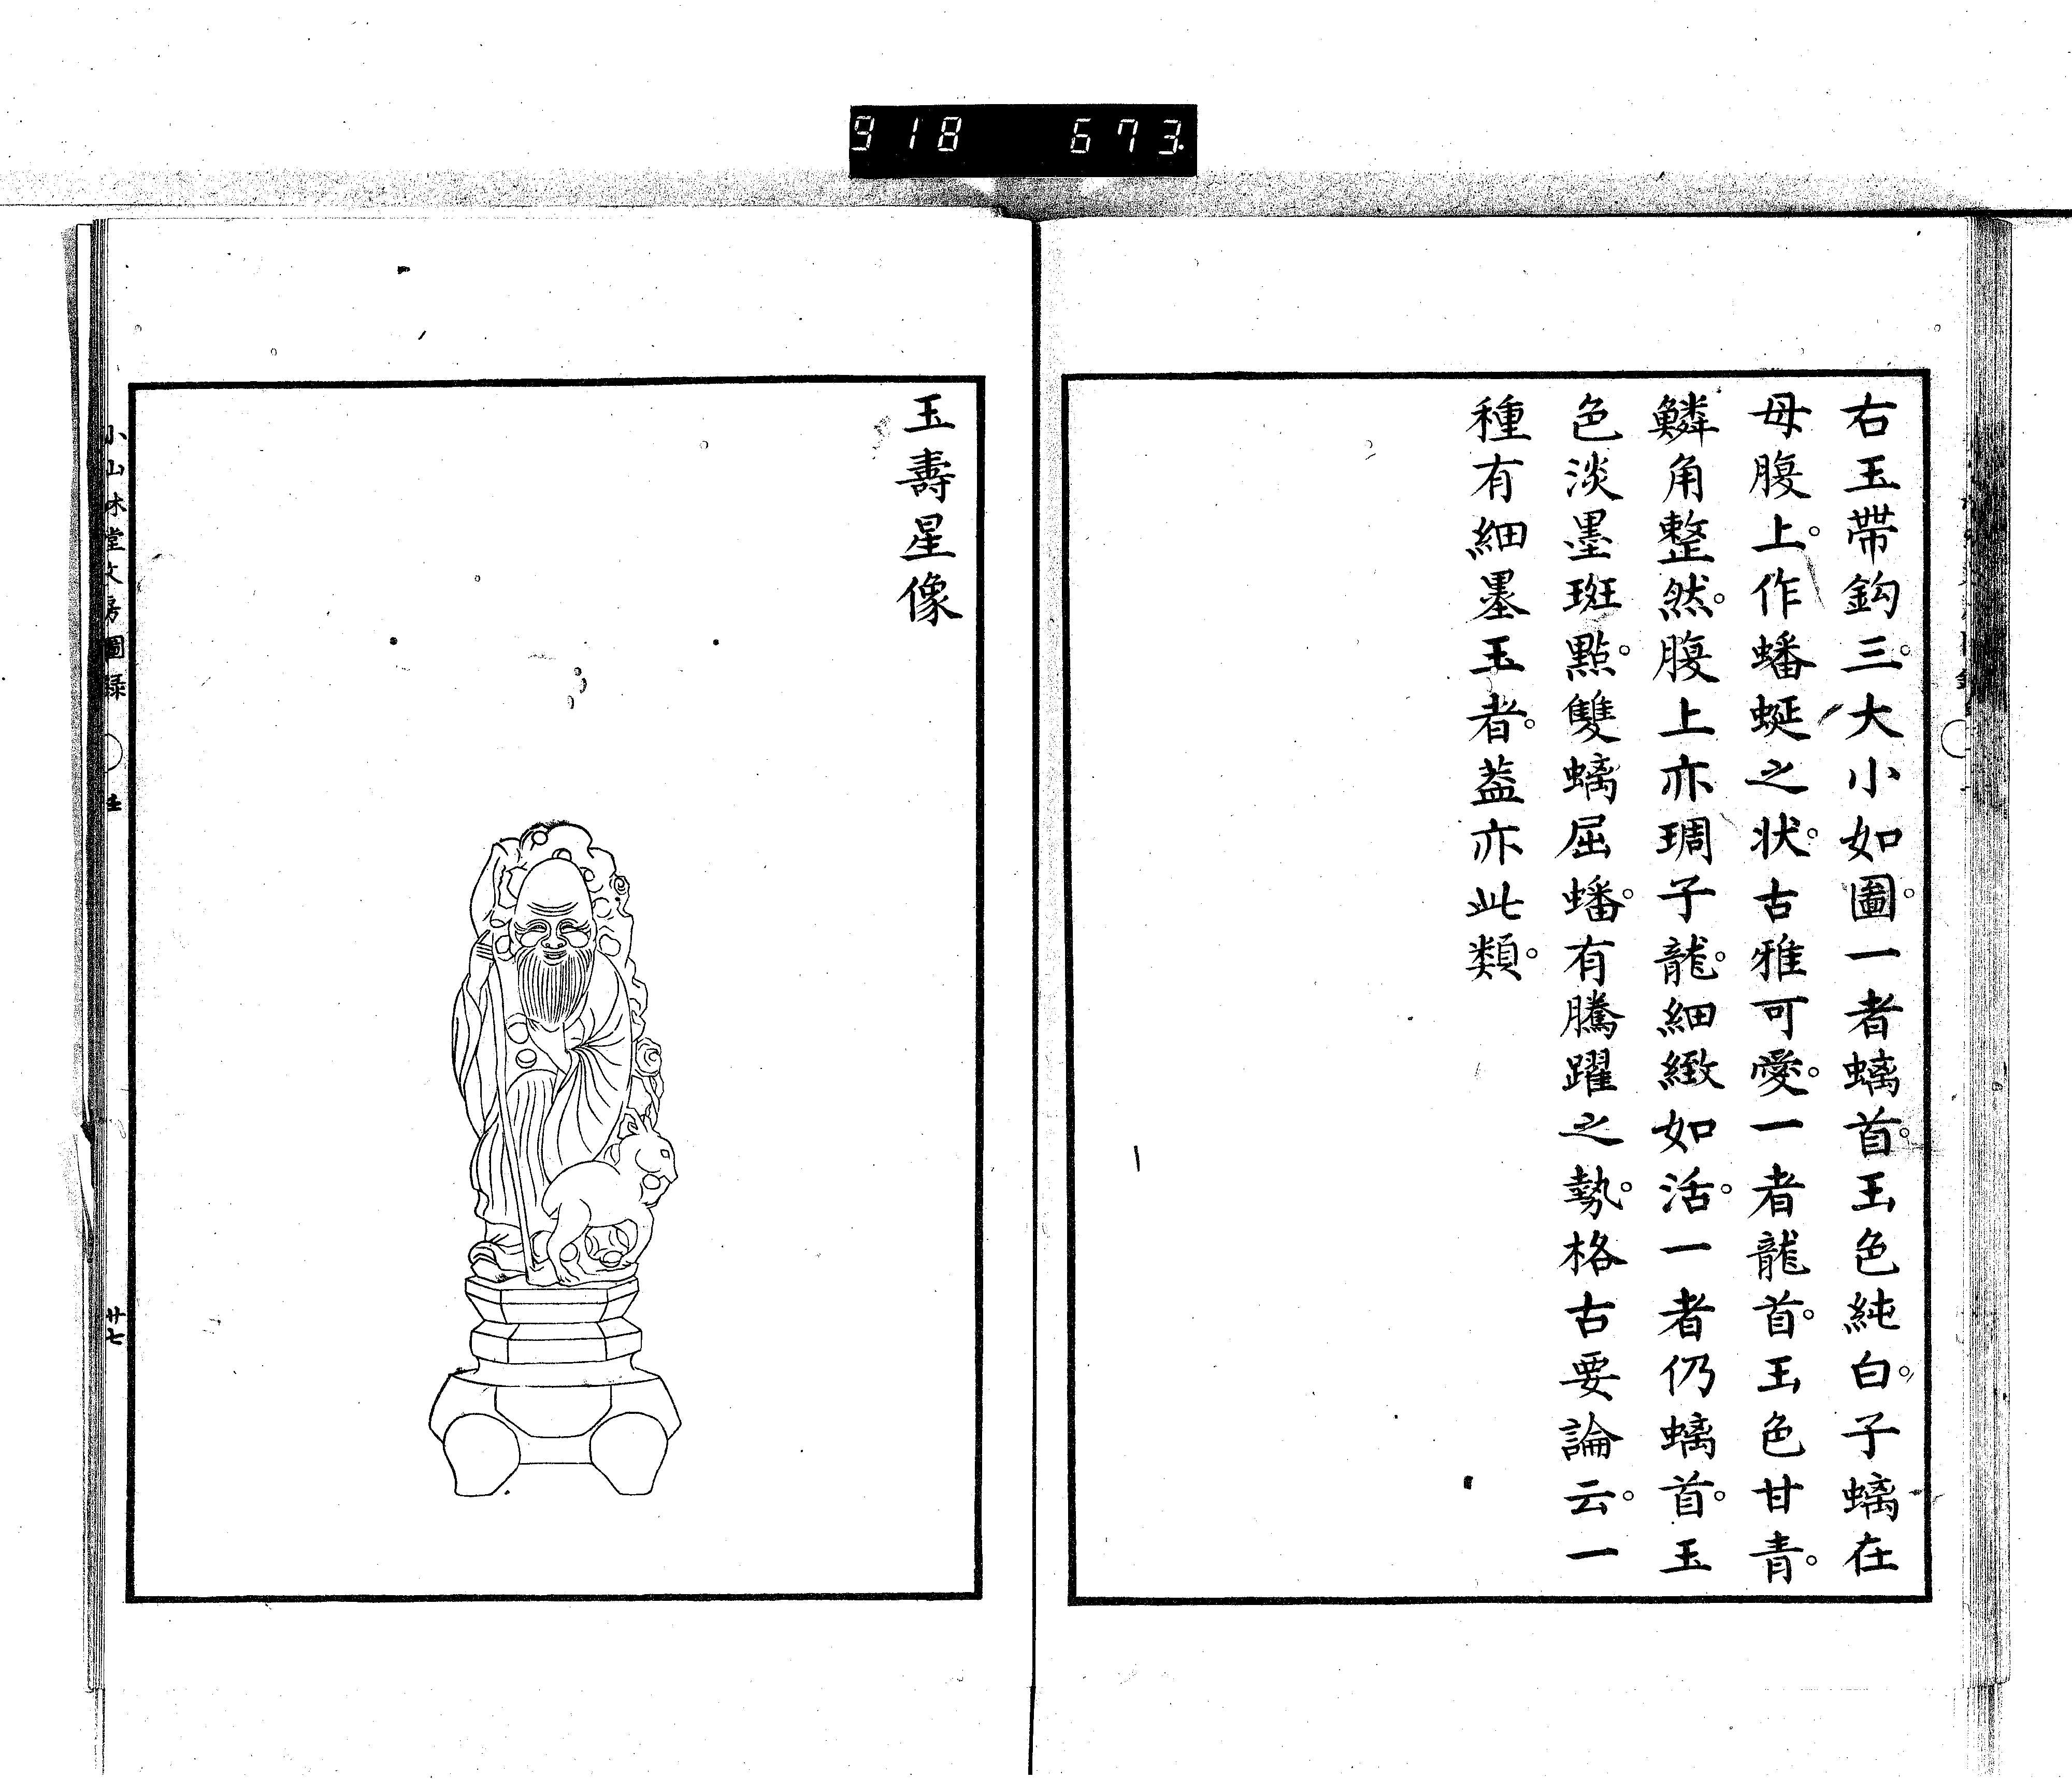 918 673.
右玉帶鈎。三大小如圖。一者螭首。玉色純白。子螭在
母腹上。作蟠蜒之状。古雅可愛。一者龍首。玉色甘青。
鱗角整然。腹上亦琱子龍。細緻如活。一者仍螭首。玉
色淡墨斑點。雙螭屈蟠。有騰躍之勢。格古要論云。一
種有細墨玉者。葢亦此類。
玉壽星像
小山林堂文房圖録
五
廿七